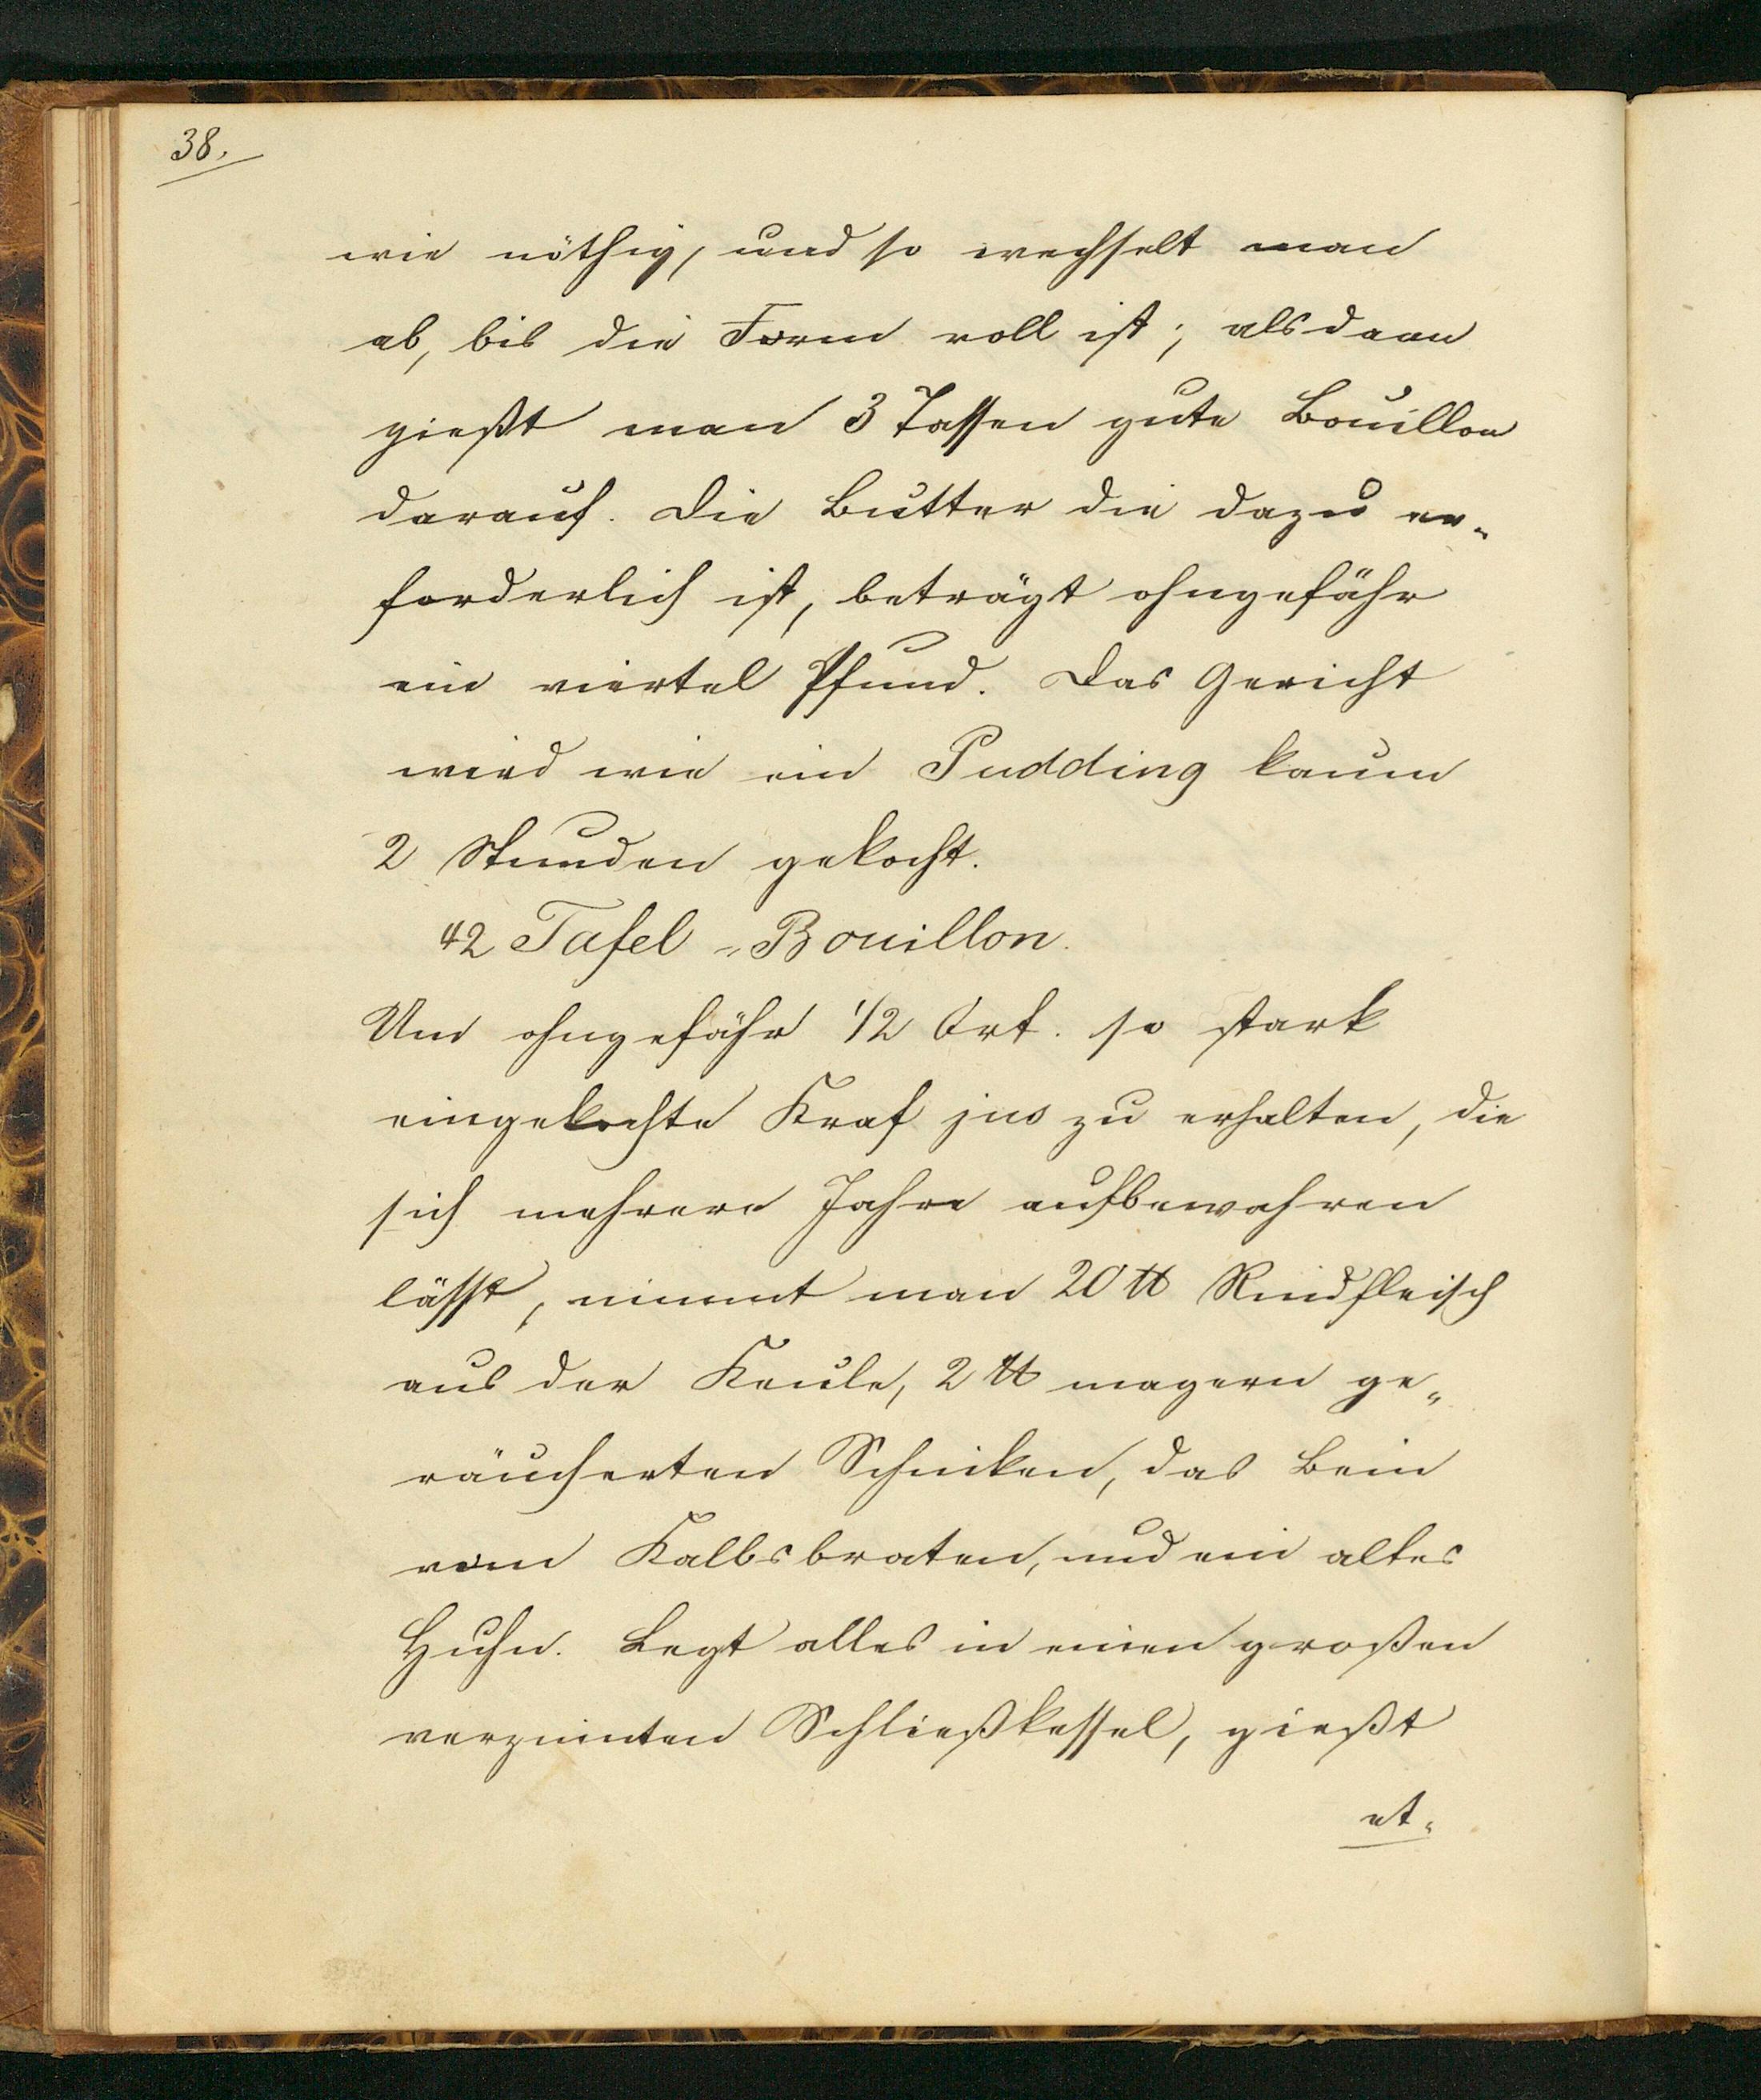 38.
wie nöthig, und so wechselt man
ab, bis die Form voll ist; alsdann
gießt man 3 Tassen gute Bouillon
darauf. Die Butter die dazu er-
forderlich ist, beträgt ohngefähr
ein viertel Pfund. Das Gericht
wird wie ein Pudding kaum
2 Stunden gekocht.
42 Tafel-Bouillon.
Um ohngefähr 1/2 Ort. so stark
eingekochte Kraf jus zu erhalten, die
sich mehrere Jahre aufbewahren
lässt, nimmt man 20 ℔ Rindfleisch
aus der Keule, 2 ℔ magern ge-
räucherten Schinken, das Bein
vom Kalbsbraten, und ein altes
Huhn. Legt alles in einen großen
verzinnten Schließkessel, gießt
et-